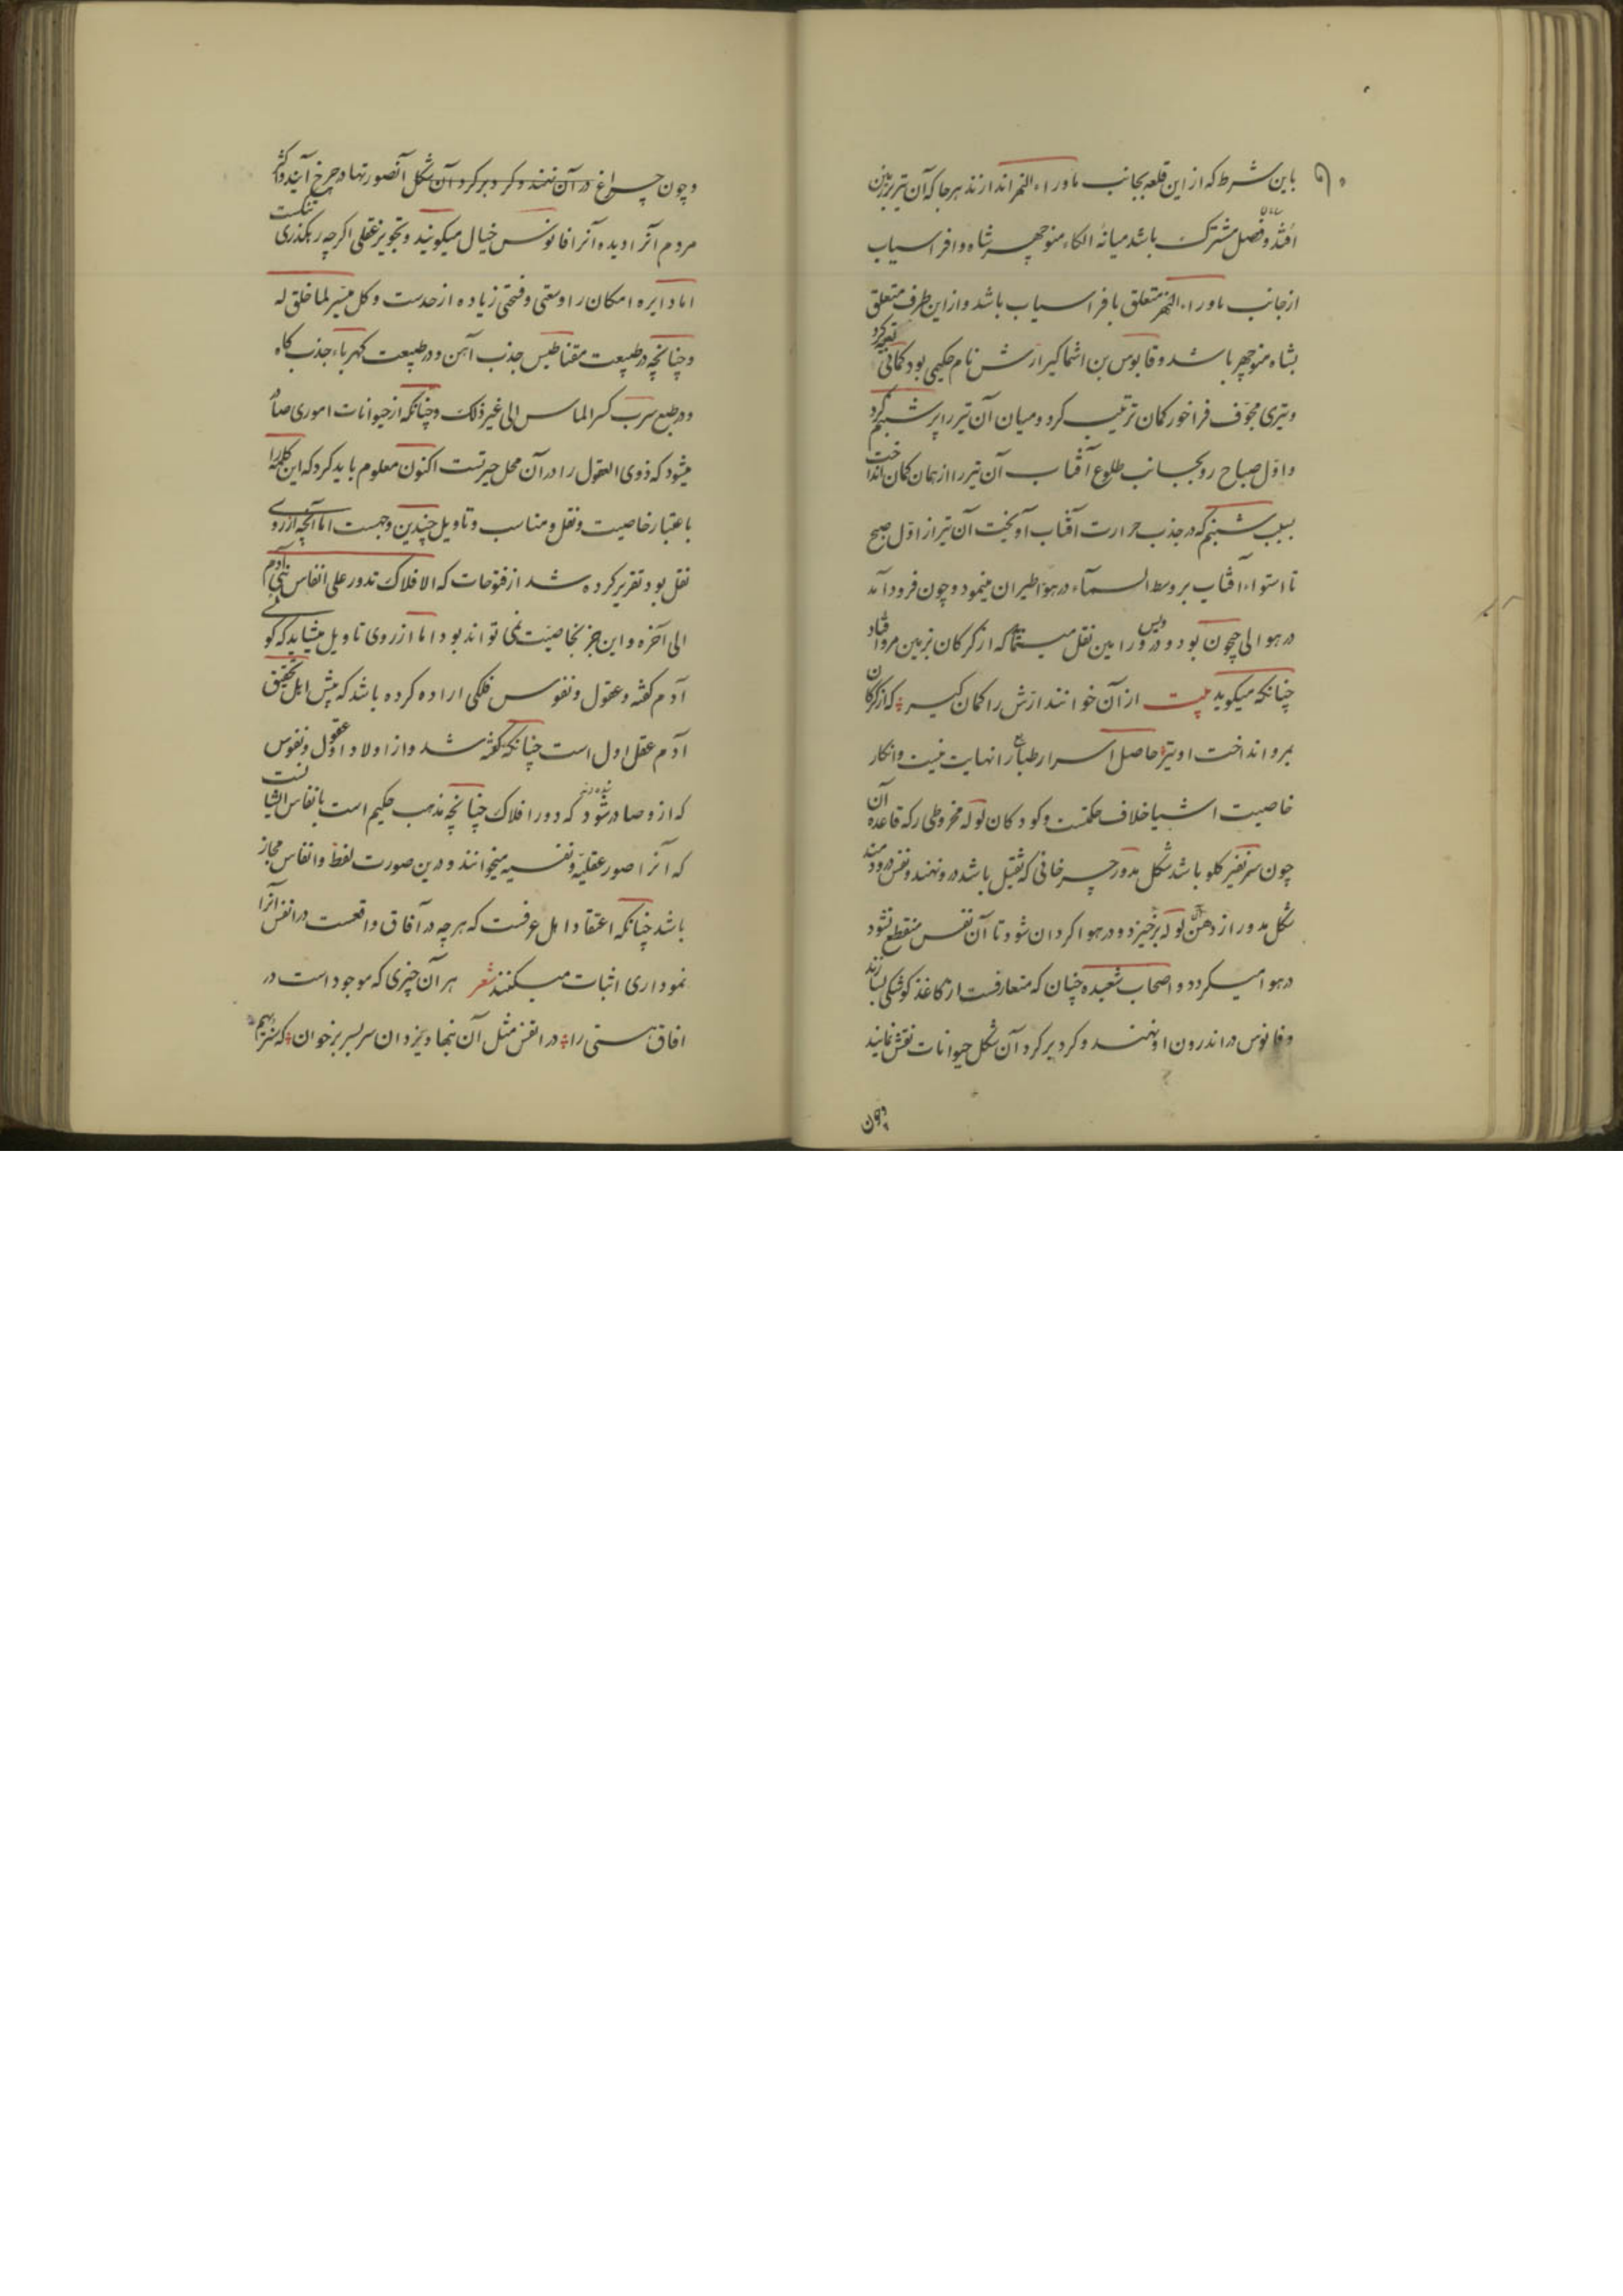 باین شرط که از این قلعه بجانب ماوراء النهر اندازند هرجا که آن تیر بزمین
افتد و فصل مشترک باشد میانهٔ الکاء منوچهر شاه و افراسیاب
از جانب ماوراء النهر متعلق بافراسیاب باشد و از این طرف متعلق
بشاه منوچهر باشد و قابوس بن اشماکیر ارش نام حکیمی بود کمانی تعبیه کرد
و تیری مجوّف فراخور کمان ترتیب کرد و میان آن تیر را پر شبنم کرد
و اوّل صباح رو بجانب طلوع آفتاب آن تیر را از همان کمان انداخت
بسبب شبنم که در جذب حرارت آفتاب آویخت آن تیر از اوّل صبح
تا استواء آفتاب بر وسط السمآء در هوا طیران مینمود و چون فرود آمد
در هوالی جیحون بود و در ویس و رامین نقل میستما که از کرکان بزمین مرو افتاد
چنانکه میکوید بیت از آن خوانند ارش را کمان کیر که از کرکان
بمرو انداخت او تیر حاصل اسرار طبایع را نهایت نیست و انکار
خاصیت اشیا خلاف حکمتست و کودکان لوله مخروطی را که قاعده آن
چون سر نفیر کلو باشد شکل مدور چرخانی که ثقیل باشد درو نهند و نفس درو دمند
شکل مدور از دهن لوله برخیزد و در هوا کردان شود تا آن نفس منقطع نشود
در هوا میکردد و اصحاب شعبده چنان که متعارفست از کاغذ کوشکی بسازند
و فانوس در اندرون او نهند و کرد بر کرد آن شکل حیوانات نقش نمایند
و چون
و چون چراغ در آن نهند و کرد بر کرد آن شکل آنصورتها در چرخ آیند و اکثر
مردم آنرا دیده آنرا فانوس خیال میکویند و تجویز عقلی اکرچه رهکذری تنکست
اما دایره امکان را وسعتی و فسحتی زیاده از حدست و کل میسّر لما خلق له
و چنانچه در طبیعت مقناطیس جذب آهن و در طبیعت کهرباء جذب کاه
و در طبع سرب کسر الماس الی غیر ذلک و چنانکه از حیوانات اموری صادر
میشود که ذوی العقول را در آن محل حیرتست اکنون معلوم باید کرد که این کلمه را
باعتبار خاصیت و نقل و مناسب و تاویل چندین وجهست اما آنچه از روی
نقل بود تقریر کرده شد از فتوحات که الافلاک تدور علی انفاس بنی آدم
الی آخره و این جز بخاصیّت نمی تواند بود اما از روی تاویل میشاید که کوئی
آدم کفته و عقول و نفوس فلکی اراده کرده باشد که پیش اهل تحقیق
آدم عقل اول است چنانکه کفته شد و از اولاد او عقول و نفوس
که ازو صادر شود که دور افلاک چنانچه مذهب حکیم است بانفاس ایشانست
که آنرا صور عقلیّه و نفسیه میخوانند و درین صورت لفظ و انفاس مجاز
باشد چنانکه اعتقاد اهل عرفست که هرچه در آفاق واقعست در انفس آنرا
نموداری اثبات میکنند شعر هر آن چیزی که موجود است در
افاق هستی را در انفس مثل آن بنهاد یزدان سر بسر برخوان